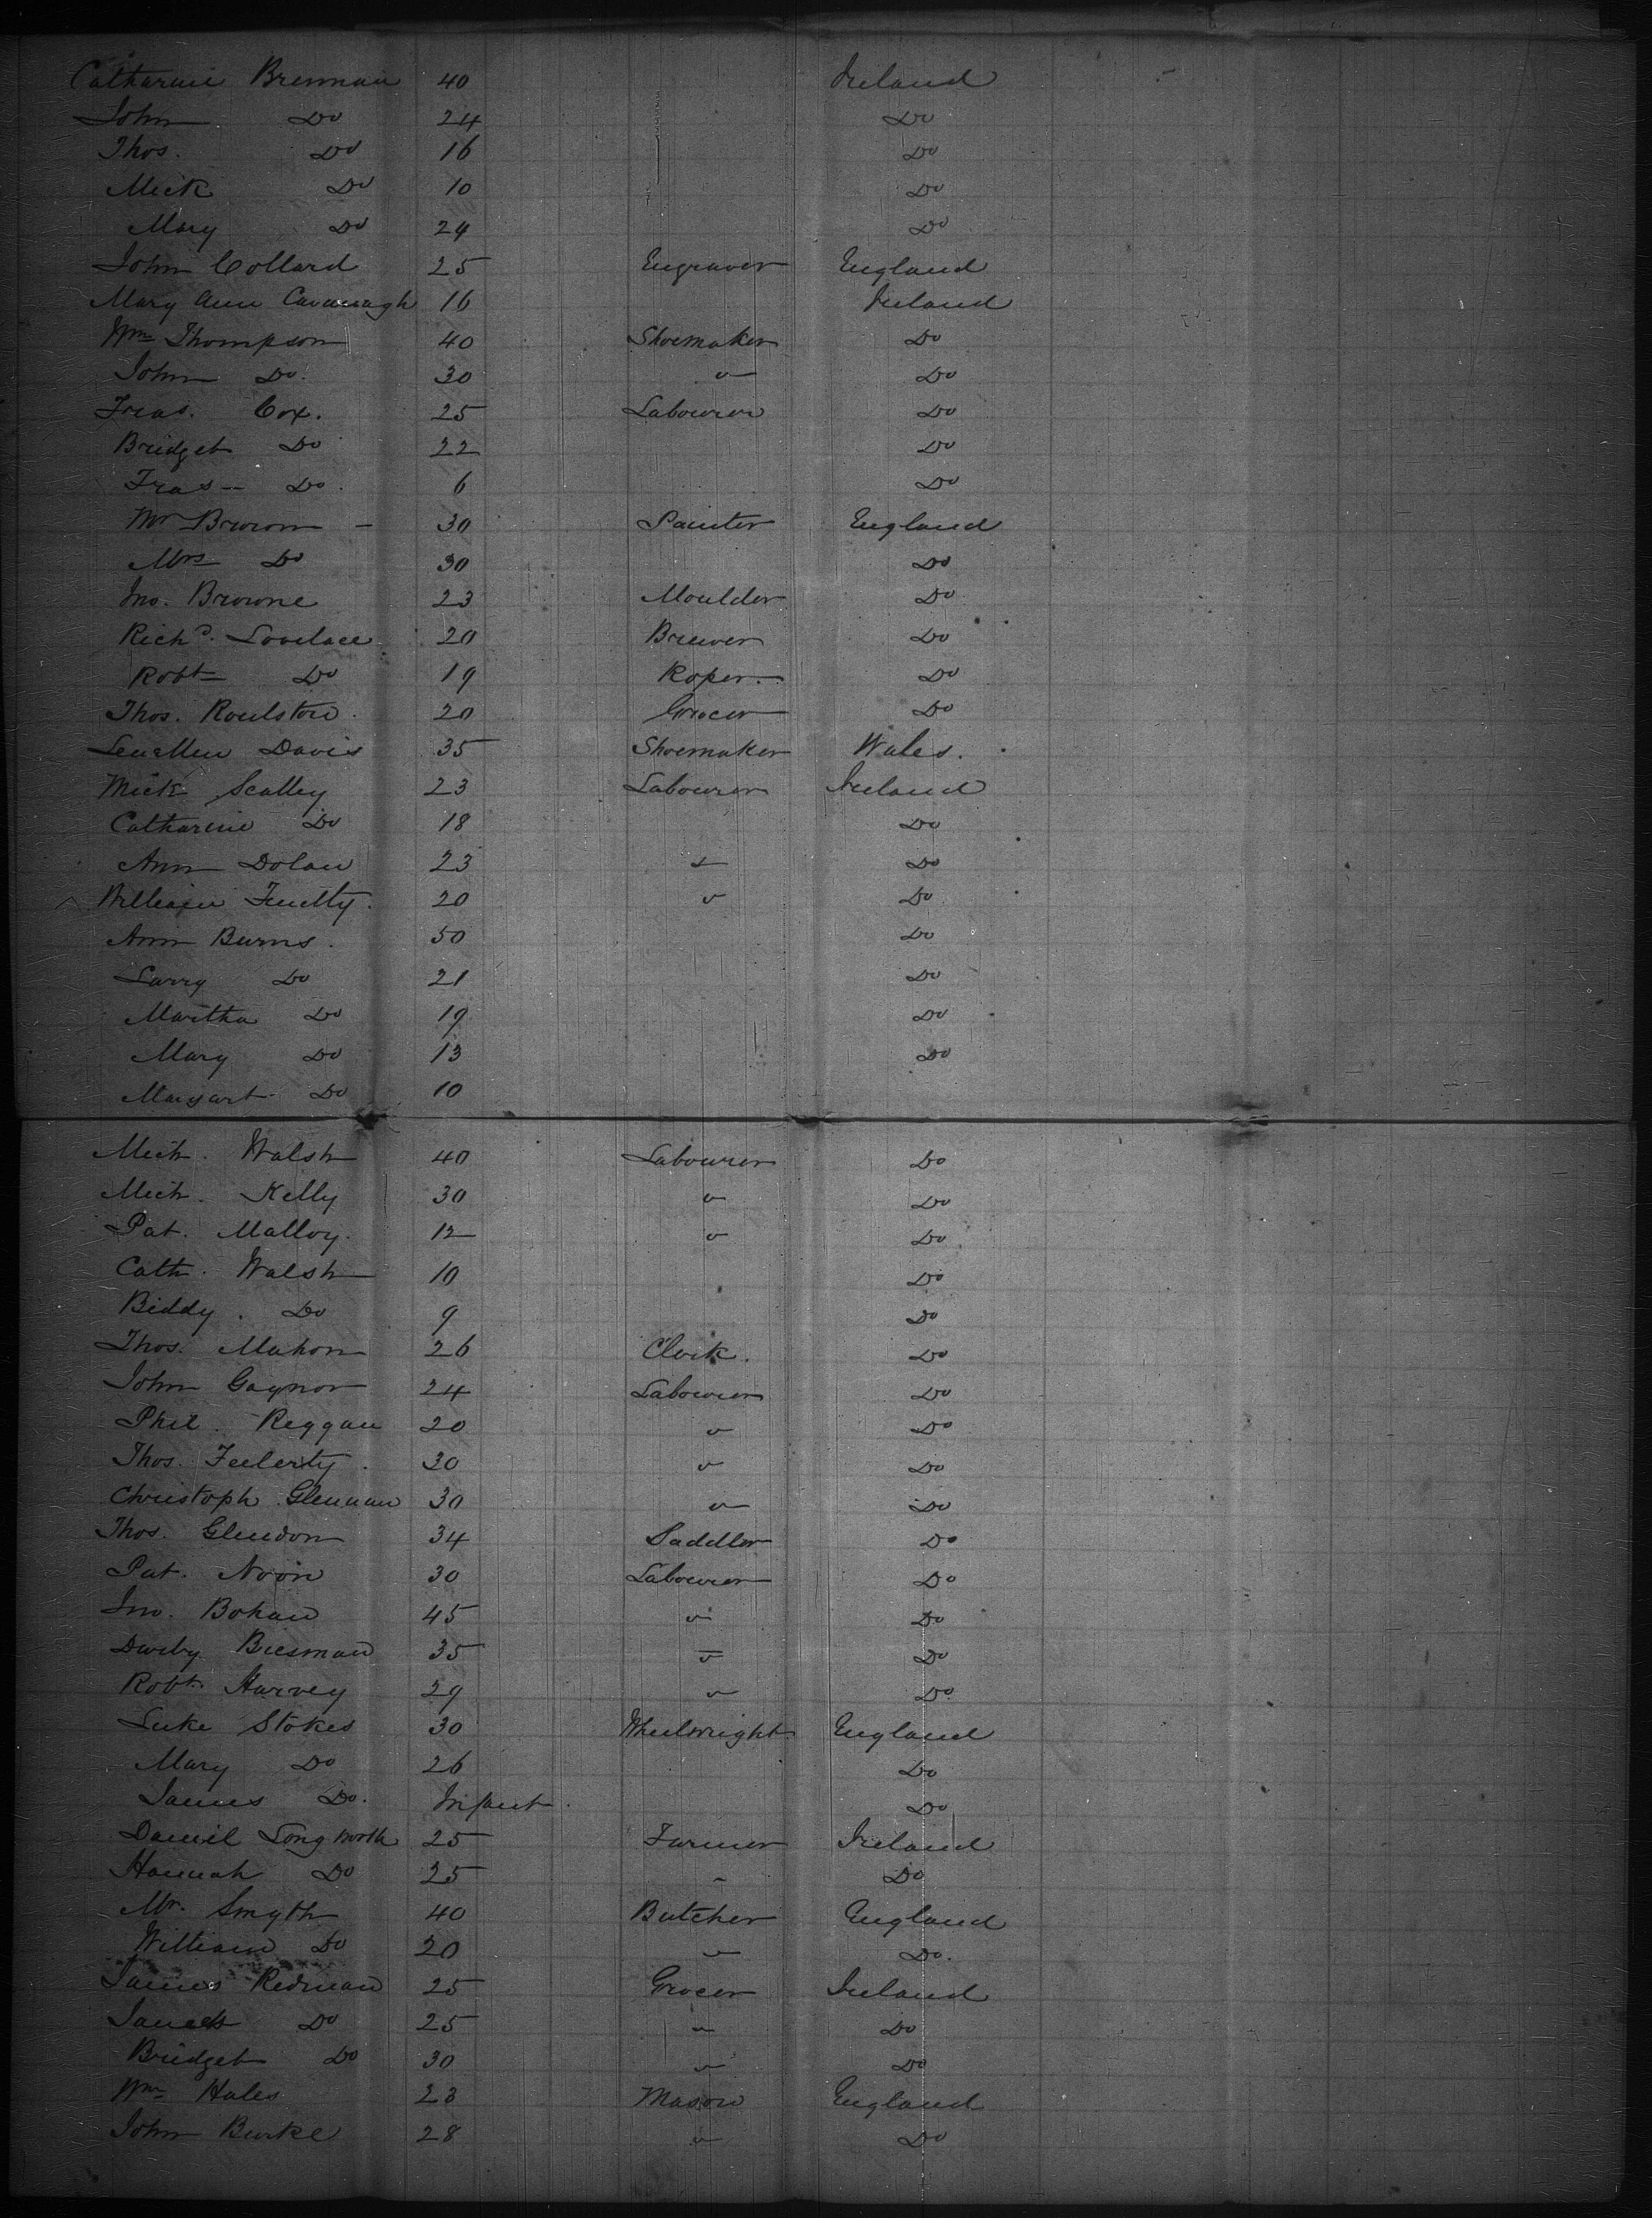 Catharine Brennan 40 Ireland
John Do 24 Do
Thos. Do 16 Do
Mick Do 10 Do
Mary Do 24 Do
John Collard 25 Engraver England
Mary Ann Cavanagh 16 Ireland
Wm Thompson 40 Shoemaker Do
John Do. 30 " Do
Fras. Cox. 25 Labourer Do
Bridget Do 22 Do
Fras Do. 6 Do
Mr Brown - 30 Painter England
Mrs Do 30 Do
Jno. Browne 23 Moulder Do
Richd. Lovelace 20 Brewer Do
Robt Do 19 Roper. Do
Thos. Roulston. 20 Grocer Do
Lewellen Davis 35 Shoemaker Wales.
Mick Scalley 23 Labourer Ireland
Catharine Do 18 Do
Ann Dolan 23 " Do
William 20 " Do
Ann Burns. 50 Do
Larry Do 21 Do
Martha Do 19 Do
Mary Do 13 Do
Margart Do 10
Mich. Walsh 40 Labourer Do
Mich. Kelly 30 " Do
Pat. Malloy. 12 " Do
Cath. Walsh 10 Do
Biddy. Do 9 Do
Thos. Mahon 26 Clerk. Do
John Gaynor 24 Labourer Do
Phil. Reggan 20 " Do
Thos. 30 " Do
Christoph Glennan 30 " Do
Thos. Glendon 34 Saddler Do
Pat. Noon 30 Labourer Do
Jno. Bohan 45 " Do
Darby 35 " Do
Robt. Harvey 29 " Do
Luke Stokes 30 Wheelwright England
Mary Do 26 Do
James Do. Infant. Do
Daniel Longworth 25 Farmer Ireland
Hannah Do 25 " Do
Mr. Smyth 40 Butcher England
William Do 20 " Do.
James Redman 25 Grocer Ireland
Do 25 " Do
Bridget Do 30 " Do
Wm Hales 23 Mason England
John Burke 28 " Do